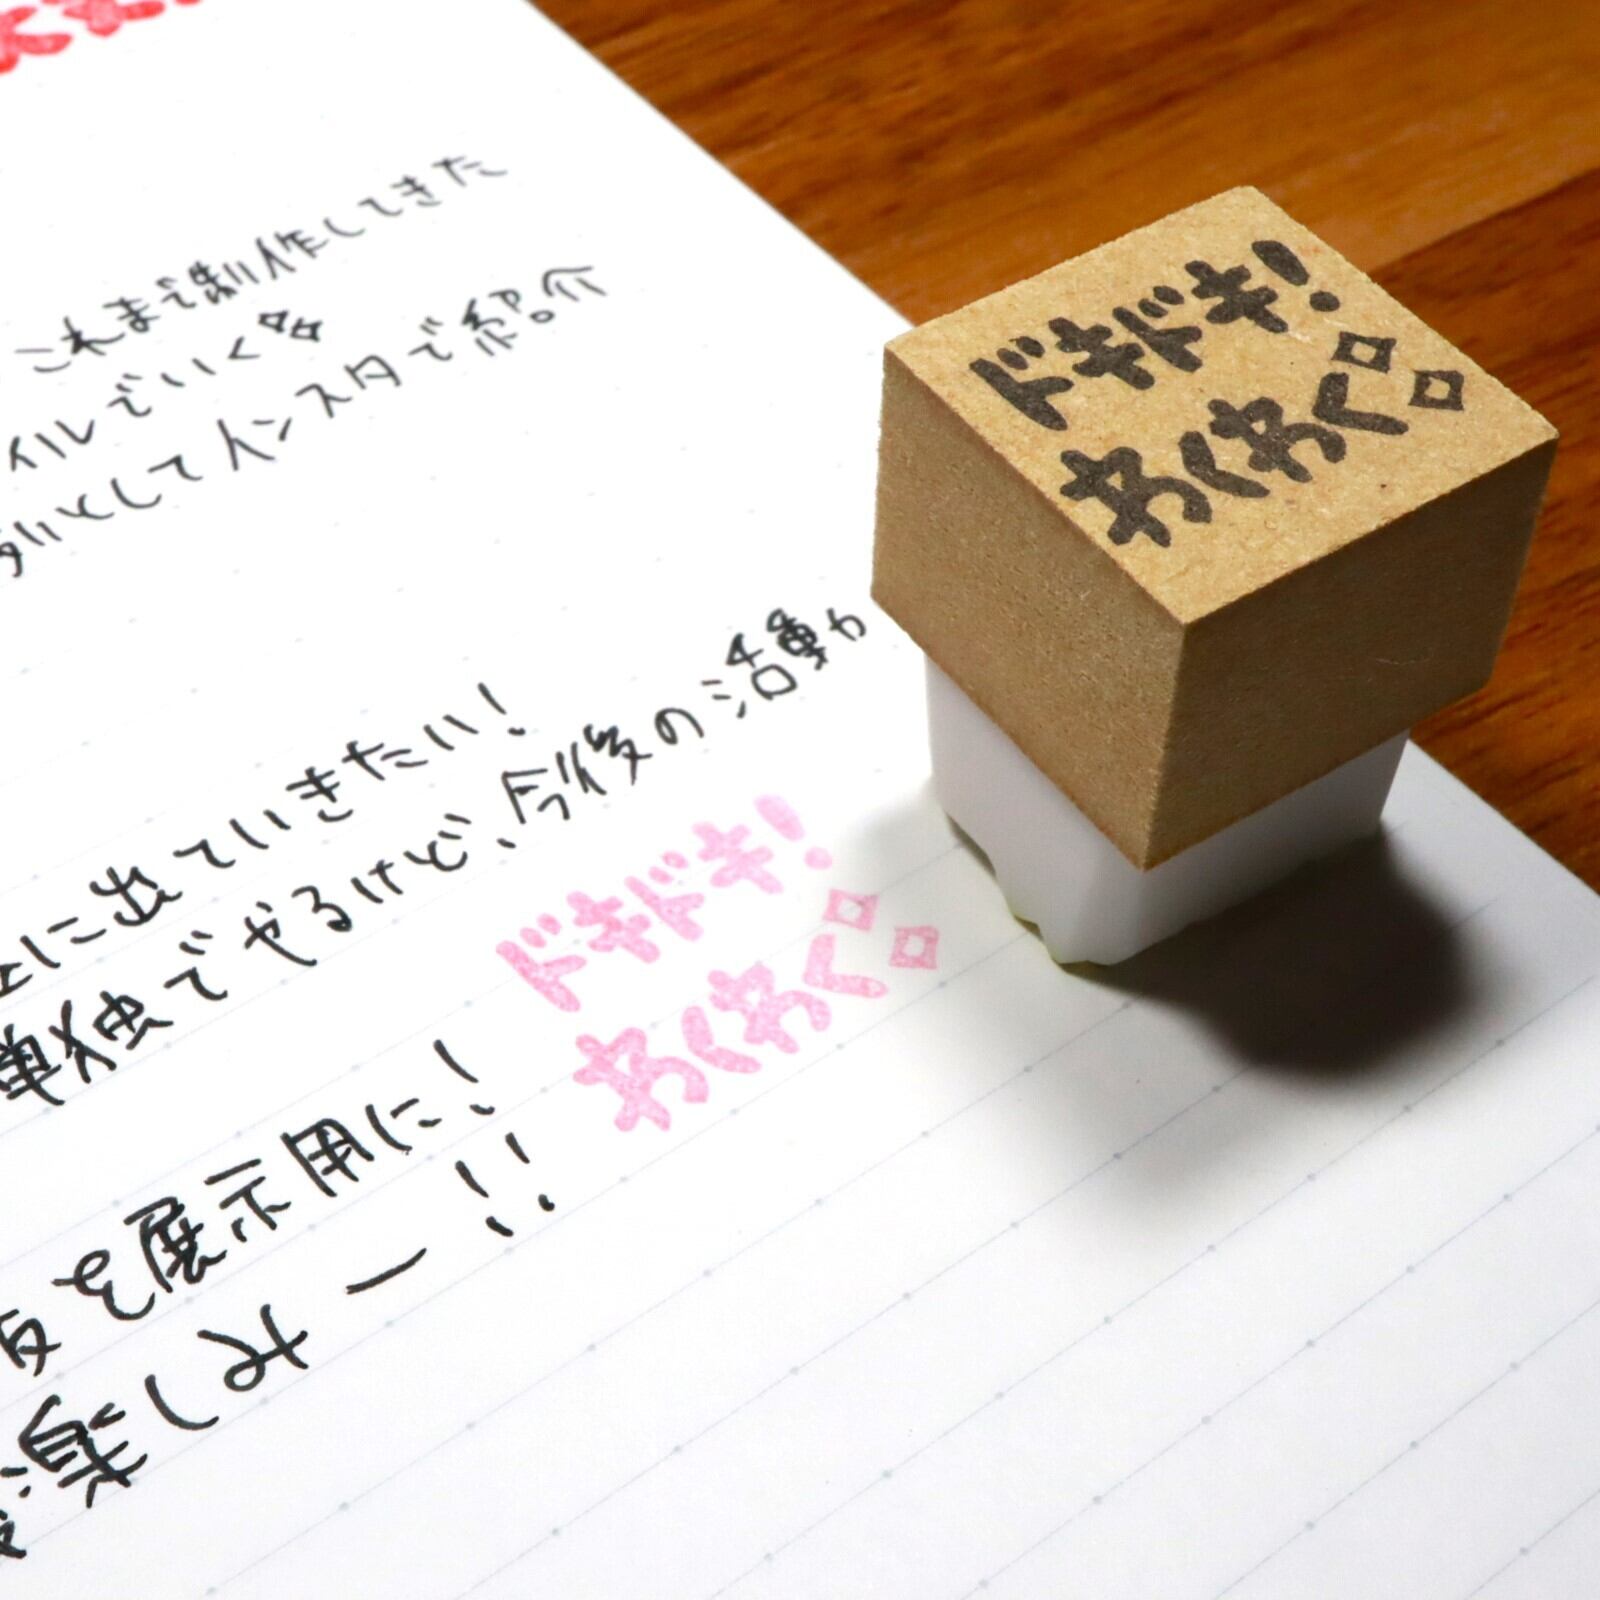 これまで制作してきた
イルでいく
としてインスタで紹介
に出ていきたい!
単独でやるけど、今後の活動
を展示用に!
楽しみー!!
ドキドキ!
わくわく
ドキドキ!
わくわく